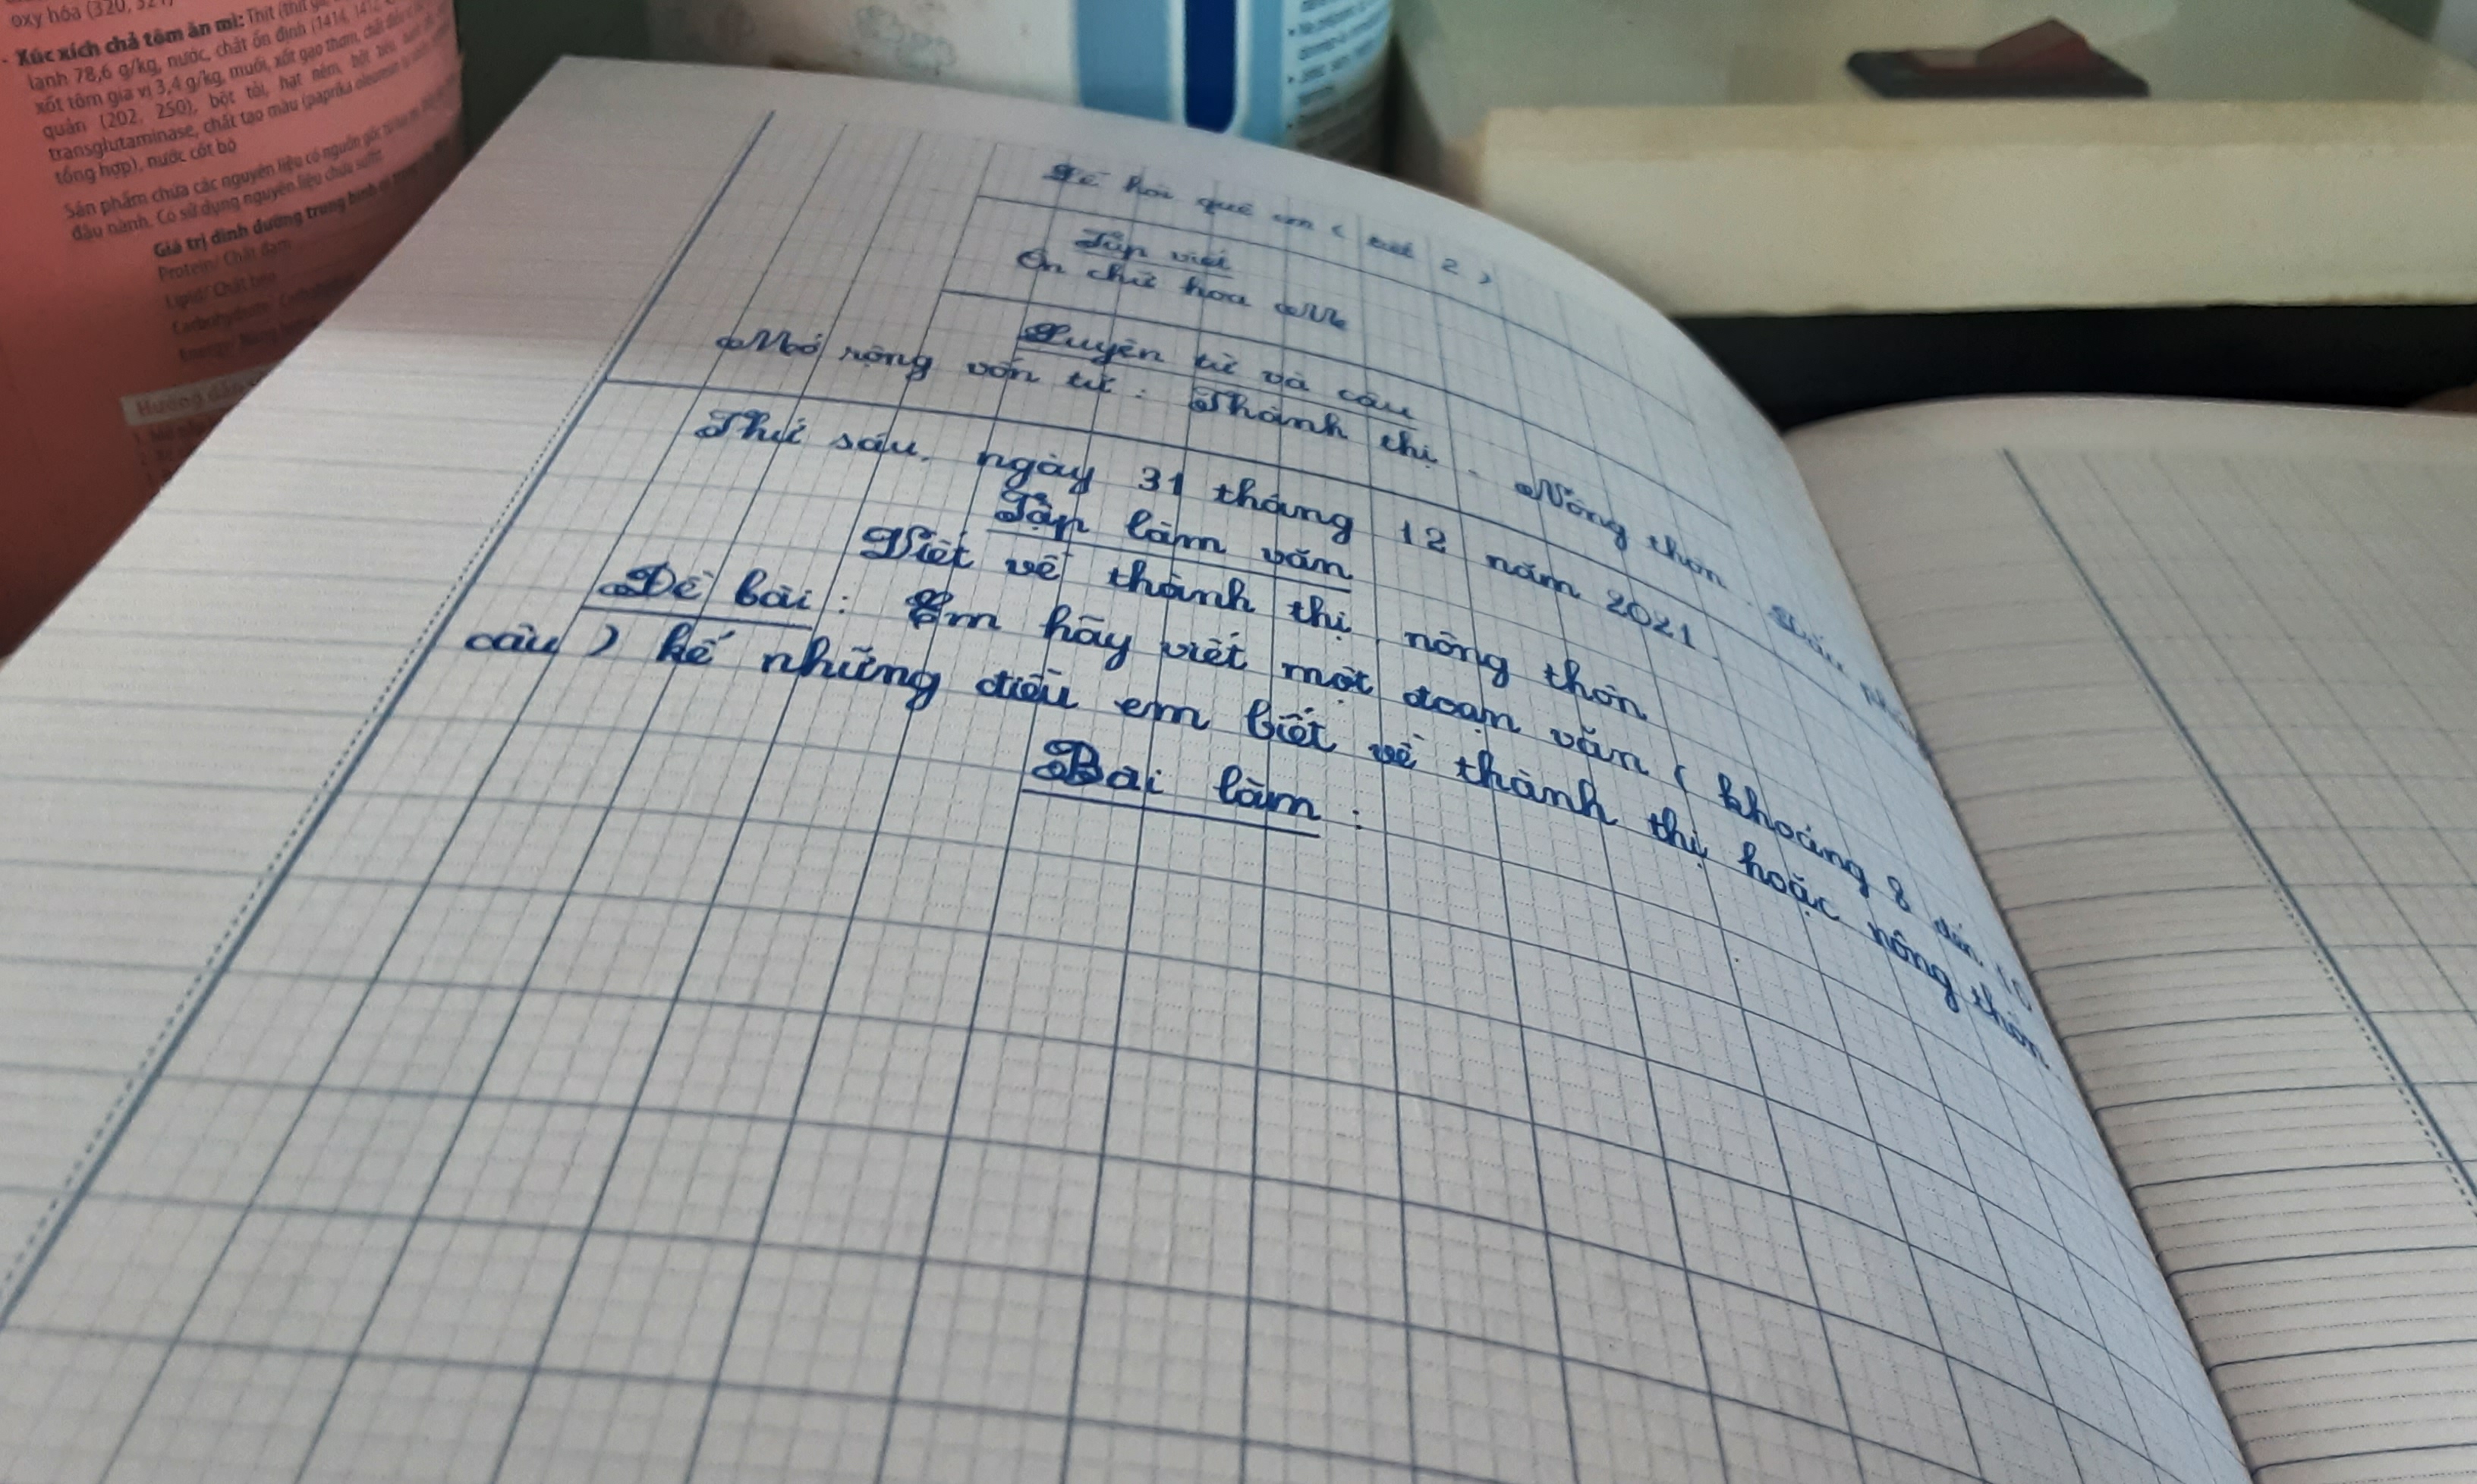 oxy hóa (320, 321)
- Xúc xích chả tôm ăn mì: Thịt (thịt
lạnh 78,6 g/kg, nước, chất ổn định (1414, 1412,
xốt tôm gia vị 3,4 g/kg, muối, xốt gạo thơm, chất điều
quản (202, 250), bột tỏi, hạt nêm, bột tiêu,
transglutaminase, chất tạo màu (paprika oleoresin
tổng hợp), nước cốt bò
Sản phẩm chứa các nguyên liệu có nguồn gốc từ
đậu nành. Có sử dụng nguyên liệu chứa sulfit
Giá trị dinh dưỡng trung bình
Protein/ Chất đạm
Lipid/ Chất béo
Carbohydrate/
Energy/ Năng
Hướng dẫn
Về hỏi quê em ( tiết 2 )
Tập viết
Ôn chữ hoa M
Luyện từ và câu
Mở rộng vốn từ : Thành thị - Nông thôn . Dấu phẩy
Thứ sáu, ngày 31 tháng 12 năm 2021
Tập làm văn
Viết về thành thị, nông thôn
Đề bài : Em hãy viết một đoạn văn ( khoảng 8 đến 10
câu ) kể những điều em biết về thành thị hoặc nông thôn
Bài làm :